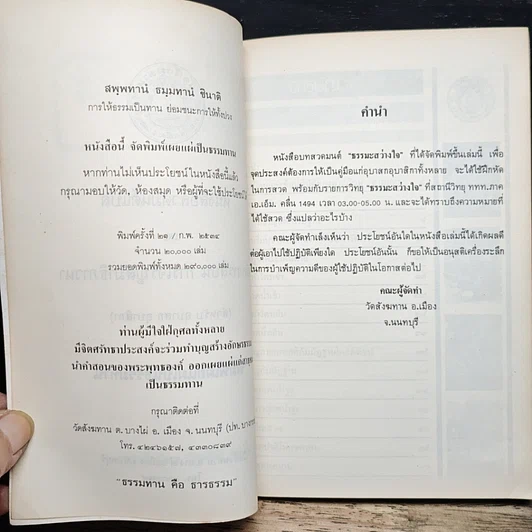 สพฺพทานํ ธมฺมทานํ ชินาติ
การให้ธรรมเป็นทาน ย่อมชนะการให้ทั้งปวง
หนังสือนี้ จัดพิมพ์เผยแผ่เป็นธรรมทาน
หากท่านไม่เห็นประโยชน์ในหนังสือนี้แล้ว
กรุณามอบให้วัด, ห้องสมุด หรือผู้ที่จะใช้ประโยชน์
พิมพ์ครั้งที่ ๒๑ / ก.พ. ๒๕๓๔
จำนวน ๒๐,๐๐๐ เล่ม
รวมยอดพิมพ์ทั้งหมด ๒๙๐,๐๐๐ เล่ม
ท่านผู้มีใจใฝ่กุศลทั้งหลาย
มีจิตศรัทธาประสงค์จะร่วมทำบุญสร้างอักษร
นำคำสอนของพระพุทธองค์ ออกเผยแผ่แด่
เป็นธรรมทาน
กรุณาติดต่อที่
วัดสังฆทาน ต. บางไผ่ อ. เมือง จ. นนทบุรี (ปท.
โทร. ๔๒๔๖๑๕๗, ๔๓๓๐๘๓๙
"ธรรมทาน คือ ธารธรรม"
คำนำ
หนังสือบทสวดมนต์ "ธรรมะสว่างใจ" ที่ได้จัดพิมพ์ขึ้นเล่มนี้ เพื่อ
จุดประสงค์ต้องการให้เป็นคู่มือแก่อุบาสกอุบาสิกาทั้งหลาย จะได้ใช้ฝึกหัด
ในการสวด พร้อมกับรายการวิทยุ "ธรรมะสว่างใจ" ที่สถานีวิทยุ ททท.ภาค
เอ.เอ็ม. คลื่น 1494 เวลา 03.00-05.00 น. และจะได้ทราบถึงความหมายที่
ได้ใช้สวด ซึ่งแปลว่าอะไรบ้าง
คณะผู้จัดทำเล็งเห็นว่า ประโยชน์อันใดในหนังสือเล่มนี้ได้เกิดผลดี
ต่อผู้เอาไปใช้ปฏิบัติเพียงใด ประโยชน์อันนั้น ก็ขอให้เป็นอนุสติเครื่องระลึก
ในการบำเพ็ญความดีของผู้ใช้ปฏิบัติในโอกาสต่อไป
คณะผู้จัดทำ
วัดสังฆทาน อ.เมือง
จ.นนทบุรี